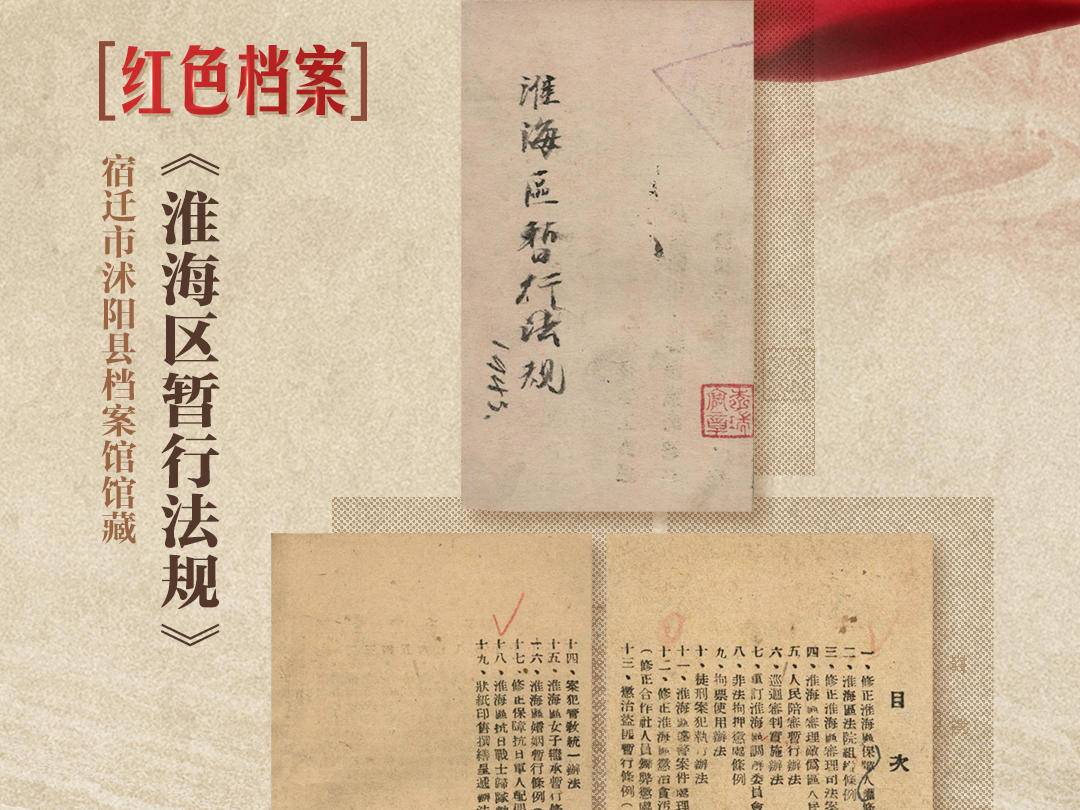 [红色档案]
《淮海区暂行法规》
宿迁市沭阳县档案馆馆藏
淮海區暫行法规
1945.
目次
一、修正淮海區保障人權
二、淮海區法院組織條例
三、修正淮海區審理司法案
四、淮海區審理敵僞區人民
五、人民陪審暫行辦法
六、巡迴審判實施辦法
七、重訂淮海區調解委員會
八、非法拘押懲處條例
九、拘票使用辦法
十、徒刑案犯執行辦法
十一、淮海區盜匪案件處理
十二、修正淮海區懲治貪污
(修正合作社人員舞弊懲處
十三、懲治盜匪暫行條例(
十四、案犯管教統一辦法
十五、淮海區女子繼承暫行條
十六、淮海區婚姻暫行條例(
十七、修正保障抗日軍人配偶
十八、淮海區抗日戰士歸隊
十九、狀紙印售撰繕呈遞辦法